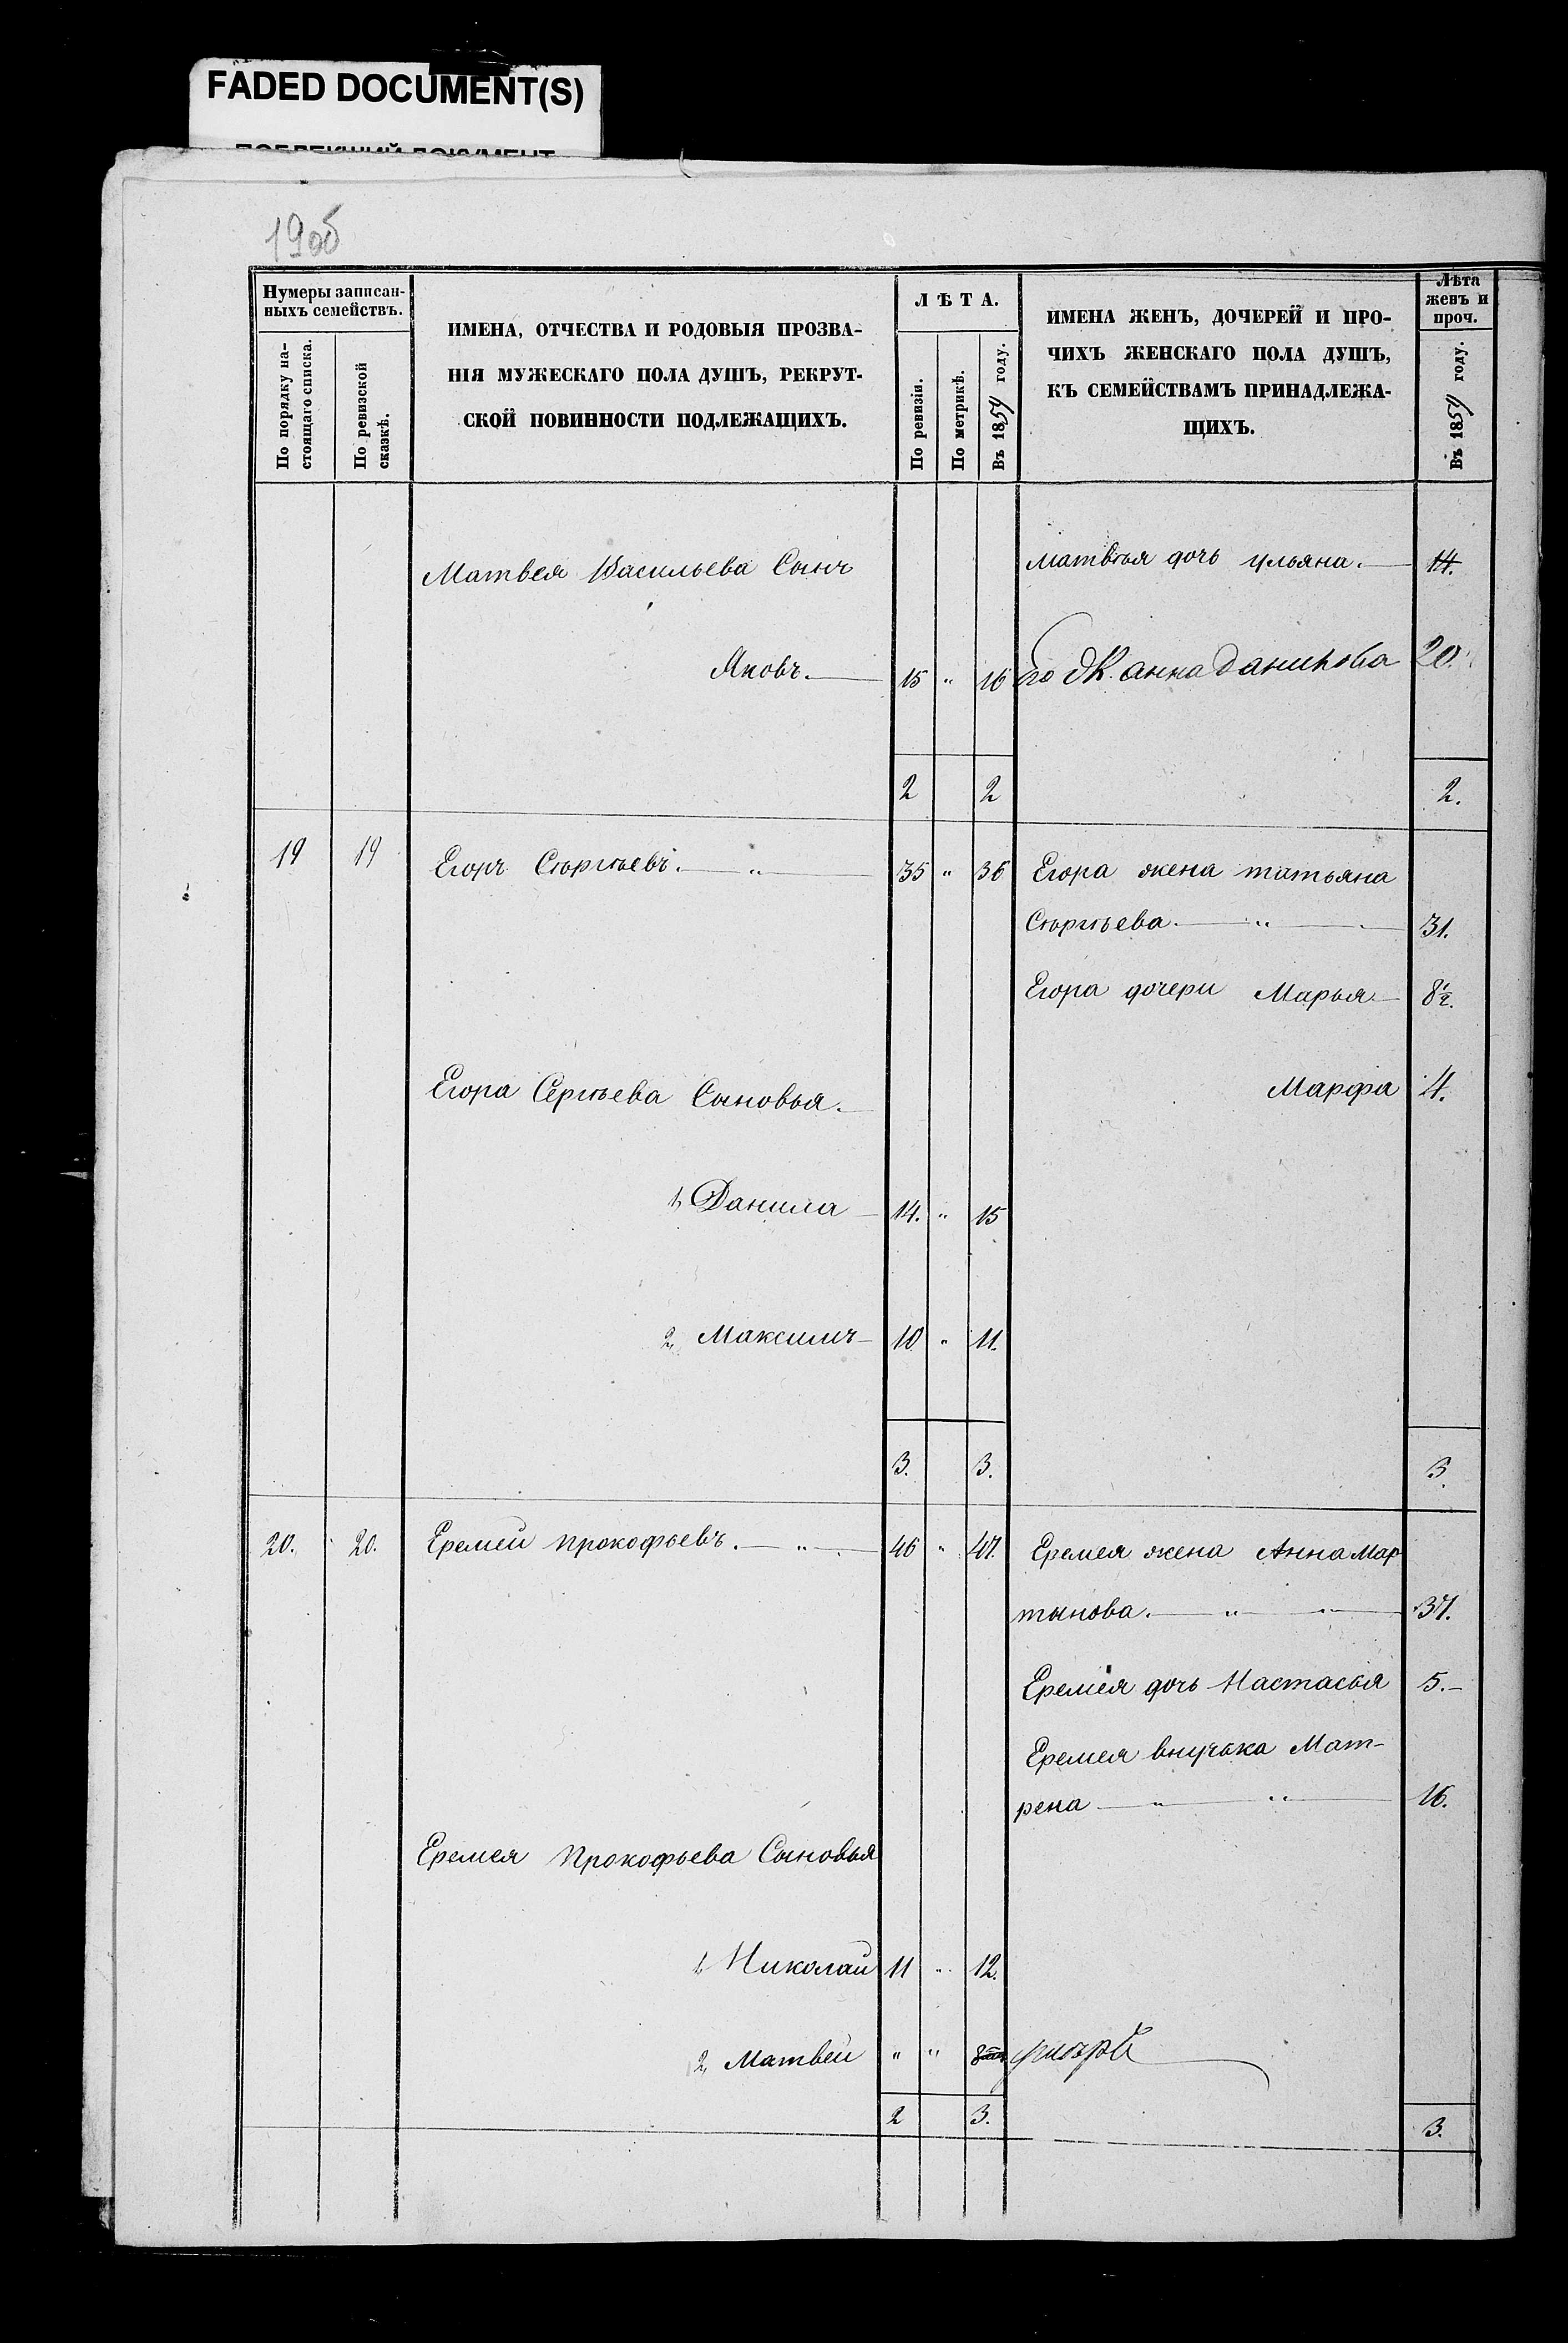 FADED DOCUMENT(S)
19об
Нумеры записан-
ныхъ семействъ.
По порядку на-
стоящаго списка.
По ревизской
сказкѣ.
ИМЕНА, ОТЧЕСТВА И РОДОВЫЯ ПРОЗВА-
НІЯ МУЖЕСКАГО ПОЛА ДУШЪ, РЕКРУТ-
СКОЙ ПОВИННОСТИ ПОДЛЕЖАЩИХЪ.
ЛѢТА.
По ревизіи.
По метрикѣ.
Въ 1854 году.
ИМЕНА ЖЕНЪ, ДОЧЕРЕЙ И ПРО-
ЧИХЪ ЖЕНСКАГО ПОЛА ДУШЪ,
КЪ СЕМЕЙСТВАМЪ ПРИНАДЛЕЖА-
ЩИХЪ.
Лѣта
женъ и
проч.
Въ 1854 году.
Матвея Васильева Сынъ
Матвѣя дочь ульяна. 14.
Яковъ. 15 " 16 го Ж. анна Данилова 20.
2 2 2.
19 19 Егоръ Сѣргѣевъ. " 35 " 36 Егора жена татьяна
Сѣргѣева. " 31.
Егора дочери Марья 8½.
Егора Сергѣева Сыновья. Марфа 4.
1, Данила 14. " 15
2, Максимъ 10 " 11.
3. 3. 3.
20. 20. Еремей прокофьевъ. " 46 " 47. Еремея жена Анна Мар
тынова. " " 37.
Еремея дочь Настасья 5.
Еремея внучька Мат-
рена " " 16.
Еремея Прокофьева Сыновья
1, Николай 11 " 12.
2, Матвей " "
2 3. 3.